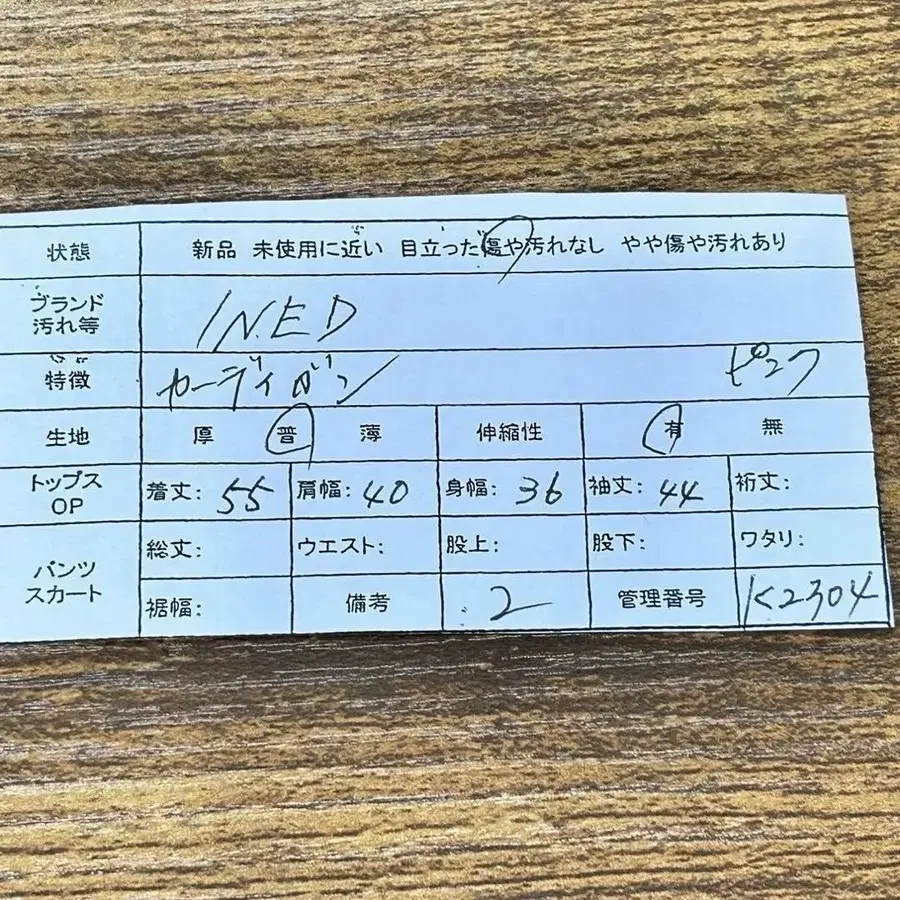 状態 新品 未使用に近い 目立った傷や汚れなし やや傷や汚れあり
ブランド
汚れ等 INED
特徴 カーディガン ピンク
生地 厚 普 薄 伸縮性 有 無
トップス
OP 着丈: 55 肩幅: 40 身幅: 36 袖丈: 44 裄丈:
パンツ
スカート 総丈: ウエスト: 股上: 股下: ワタリ:
裾幅: 備考 2 管理番号 K2304